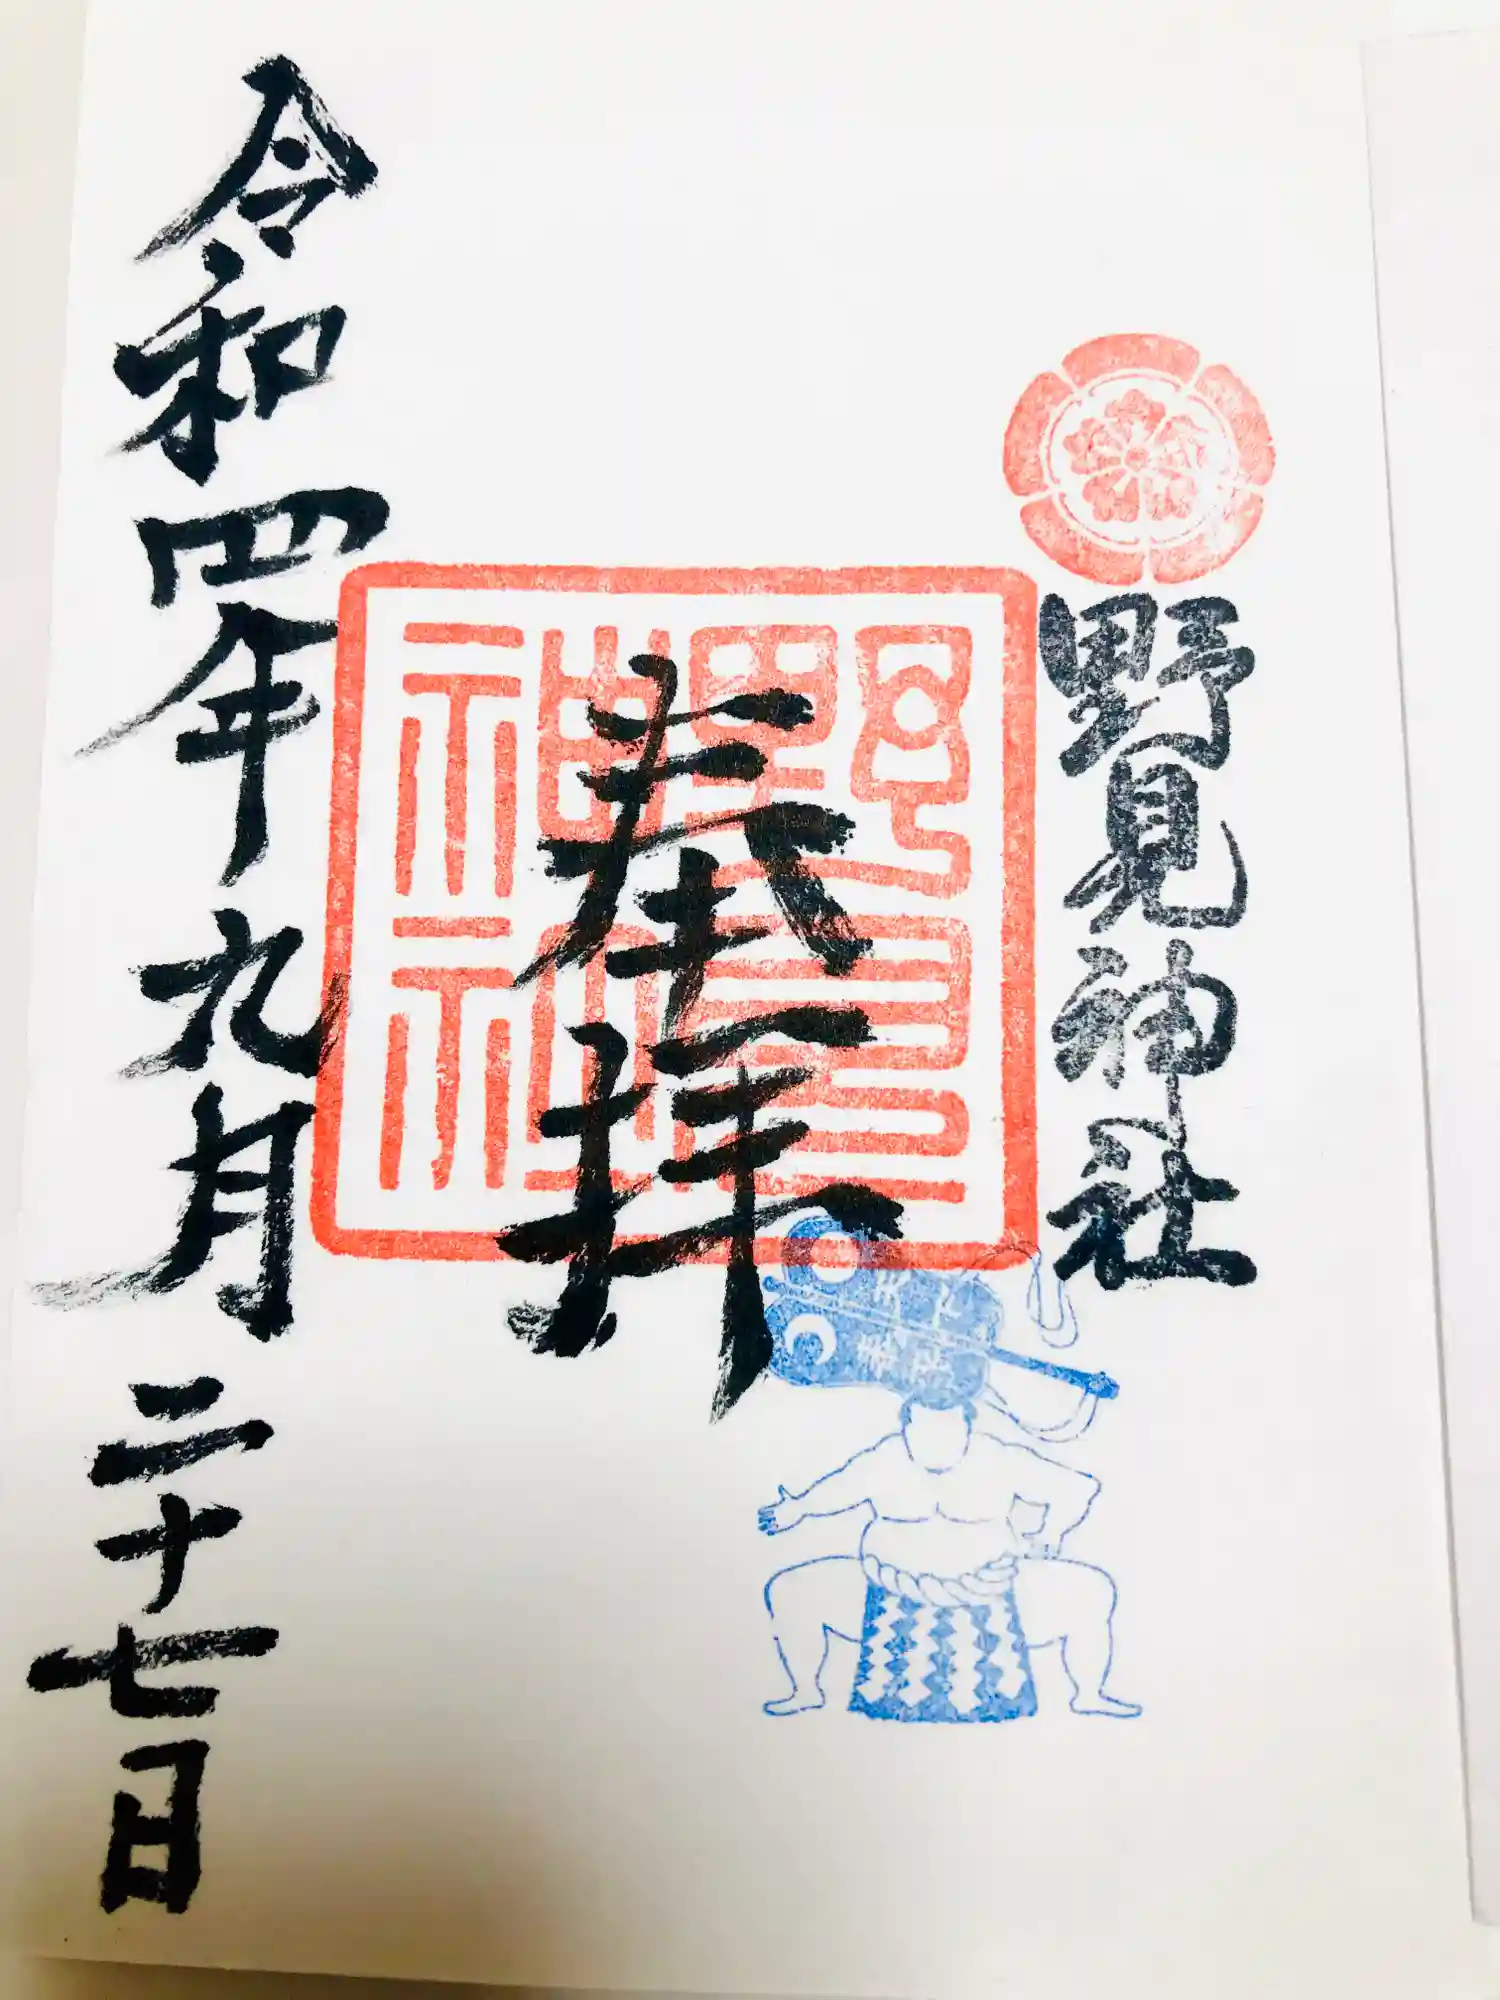 野見神社
奉拝
令和四年九月二十七日
天下
泰平